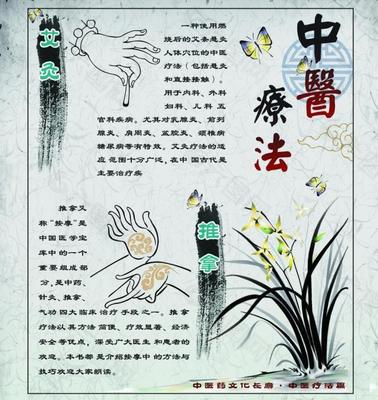 中醫
療法
艾灸
一种使用燃
烧后的艾条悬灸
人体穴位的中医
疗法（包括悬灸
和直接接触）。
用于内科、外科
妇科、儿科五
官科疾病，尤其对乳腺炎、前列
腺炎、肩周炎、盆腔炎、颈椎病
糖尿病等有特效，艾灸疗法的适
应范围十分广泛，在中国古代是
主要治疗疾
推拿
推拿又
称“按摩”是
中国医学宝
库中的一个
重要组成部
分，是中药、
针灸、推拿、
气功四大临床治疗手段之一。推拿
疗法以其方法简便、疗效显著、经济
安全等优点，深受广大医生和患者的
欢迎，本书都是介绍按摩中的方法与
技巧欢迎大家朗读。
中医药文化长廊·中医疗法篇